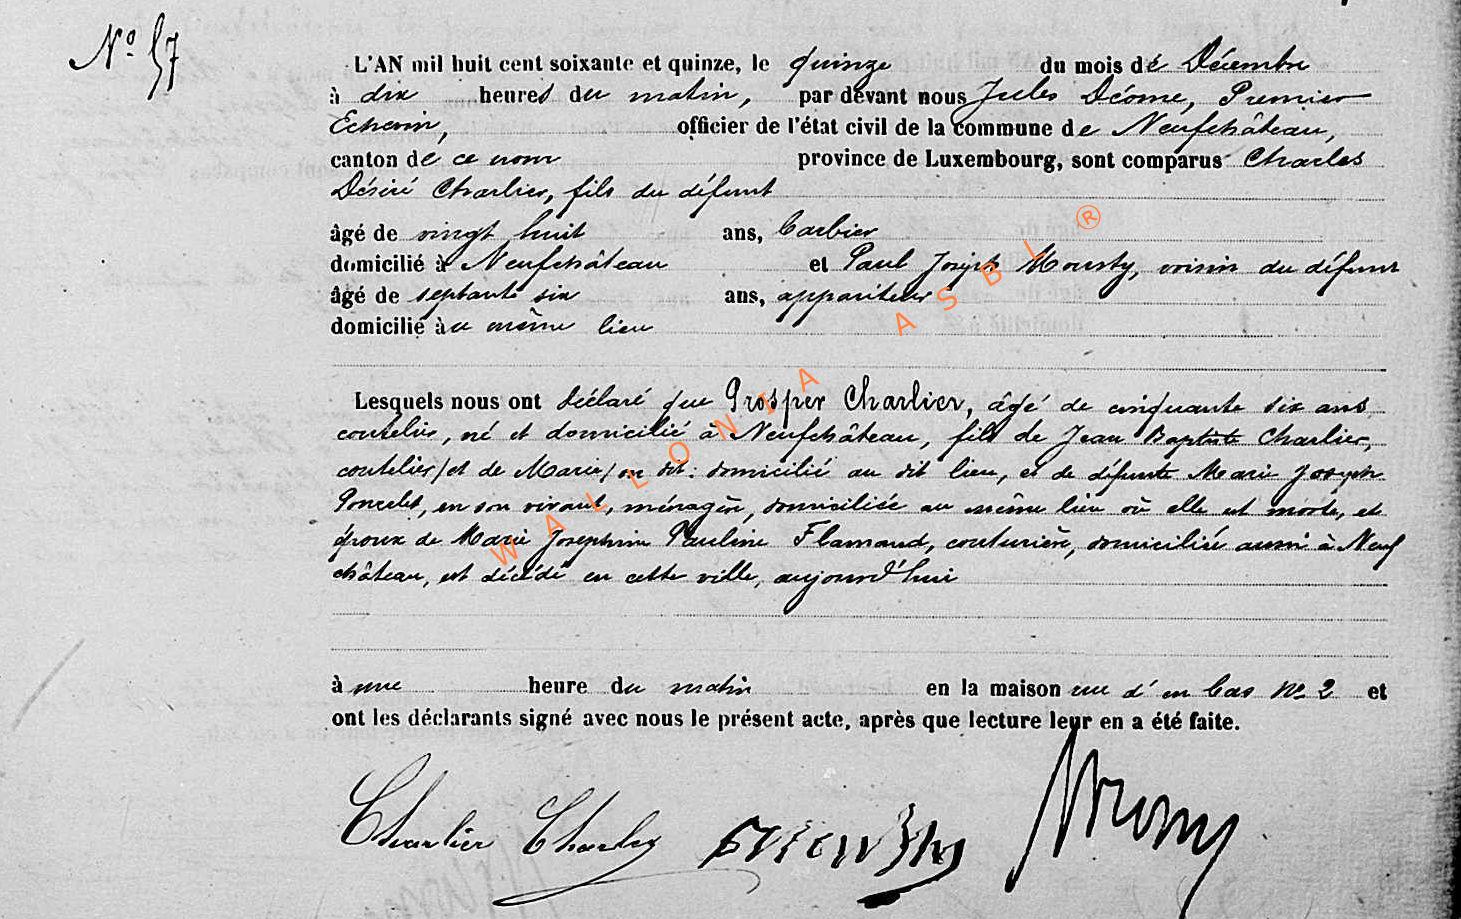 N° 57
L'AN mil huit cent soixante et quinze, le quinze du mois de Décembre
à dix heures du matin, par devant nous Jules Déome, Premier
Echevin, officier de l'état civil de la commune de Neufchâteau,
canton de ce nom province de Luxembourg, sont comparus Charles
Désiré Charlier, fils du défunt
âgé de vingt huit ans, barbier
domicilié à Neufchâteau et Paul Joseph Mousty, voisin du défunt
âgé de septante six ans, appariteur
domicilié au même lieu
Lesquels nous ont déclaré que Prosper Charlier, âgé de cinquante six ans
coutelier, né et domicilié à Neufchâteau, fils de Jean Baptiste Charlier,
coutelier/et de Marie/ domicilié au dit lieu, et de défunte Marie Joseph
Poncelet, en son vivant, ménagère, domiciliée au même lieu où elle est morte, et
époux de Marie Josephine Pauline Flamand, couturière, domiciliée aussi à Neuf
château, est décédé en cette ville, aujourd'hui
à une heure du matin en la maison rue d'en bas N° 2 et
ont les déclarants signé avec nous le présent acte, après que lecture leur en a été faite.
Charlier Charles
WALLONIA ASBL ®